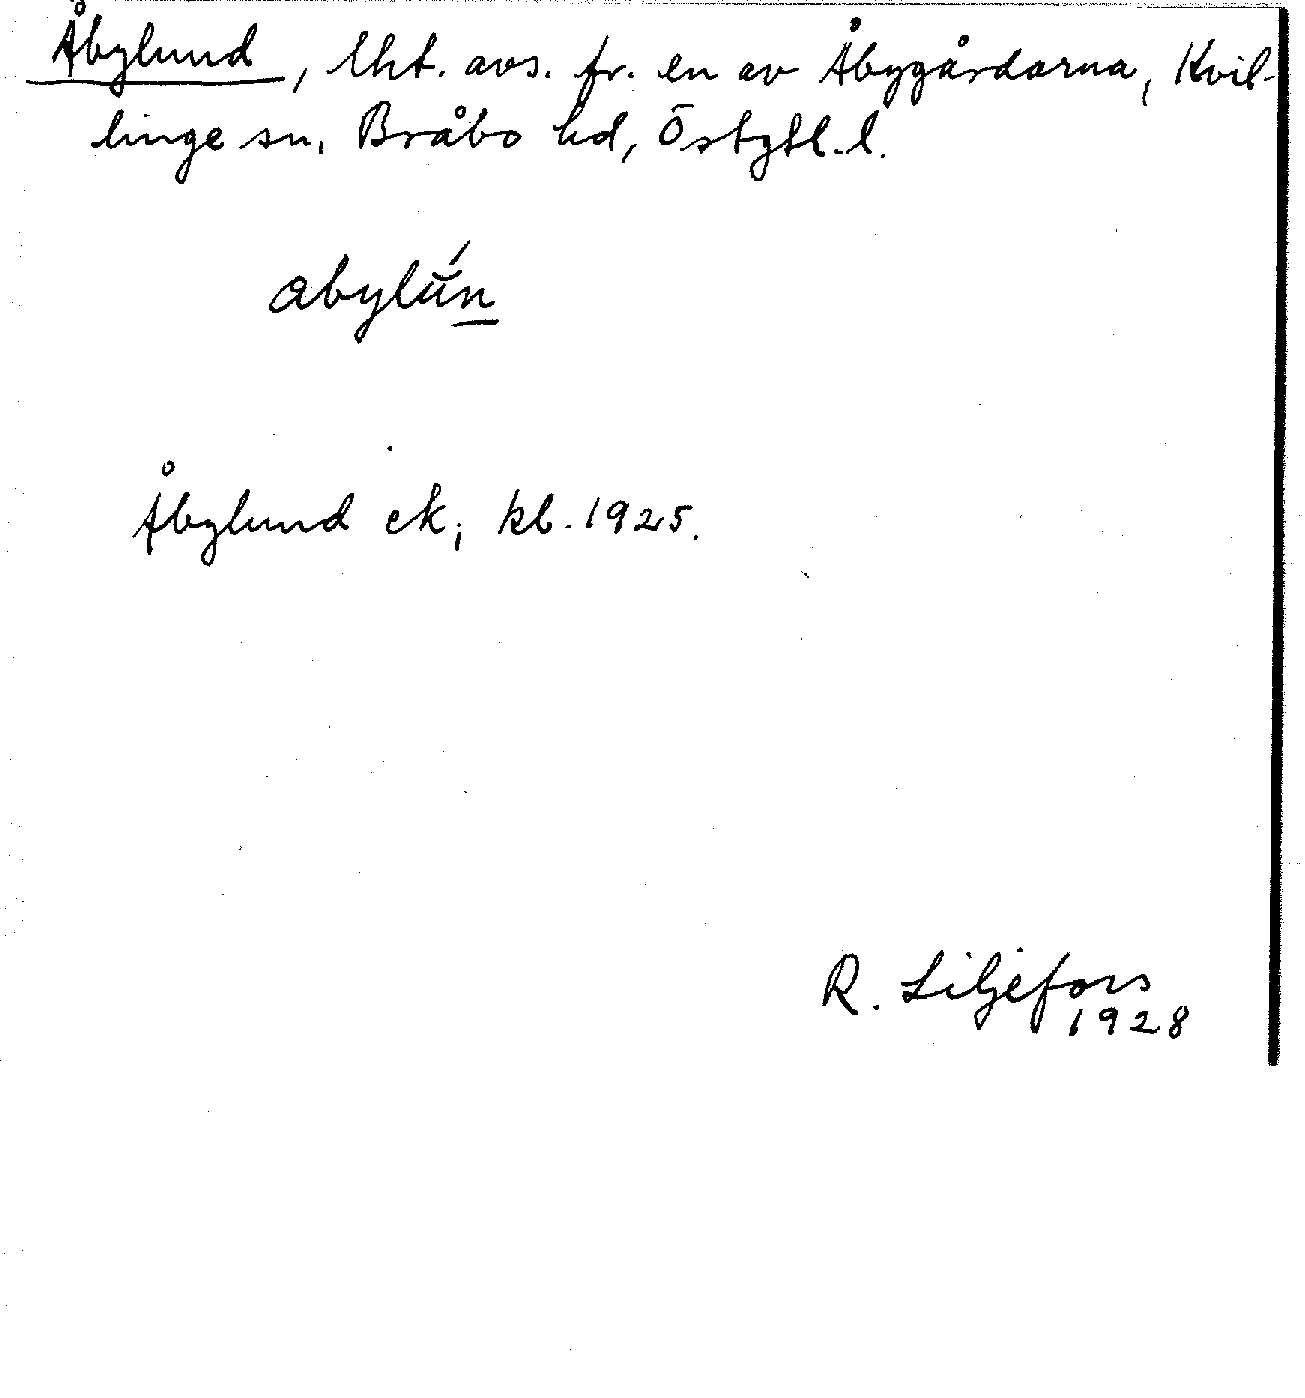 Åbylund, lht. avs. fr. en av Åbygårdarna, Kvil-
linge sn, Bråbo hd, Östgtl. l.
abylŭ́n
Åbylund ek; kb. 1925.
R. Liljefors
1928